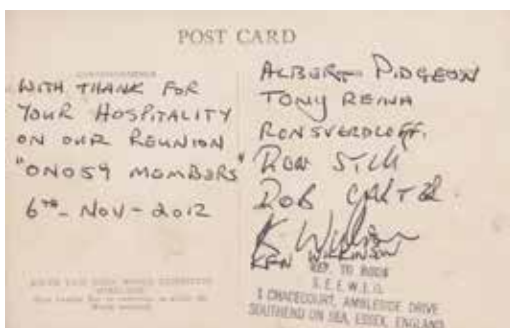 POST CARD
WITH THANK FOR
YOUR HOSPITALITY
ON OUR REUNION
"ONO59 MEMBERS"
6TH - NOV - 2012
ALBERT PIDGEON
TONY REINA
RON SVERDLOFF.
RON STILL
BOB CARTER
K Wilkinson
KEN WILKINSON
REP. TO BOOK
S.E.E.W.L.G.
CHADECOURT, AMBLESIDE DRIVE
SOUTHEND ON SEA, ESSEX, ENGLAND